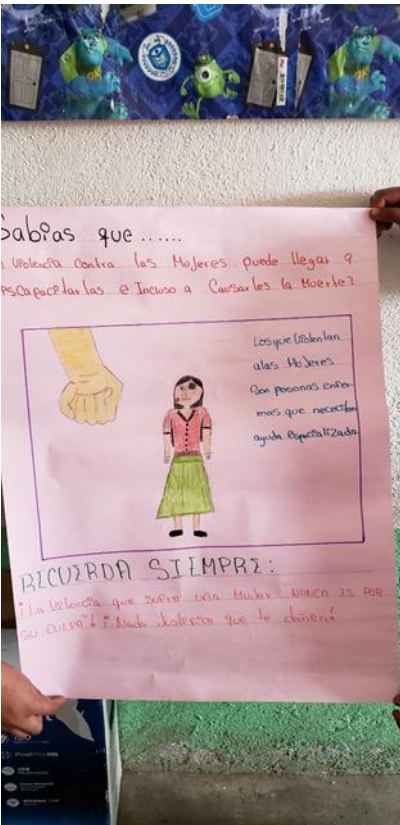 Sabias que......
violencia contra las Mujeres puede llegar a
escapacetarlas e Incluso a Causarles la Muerte?
Los que violentan
alas Mujeres
Son pesonas enfer
mas que necesitan
ayuda especializada
RECUERDA SIEMPRE:
¡La violencia que sufre una Mujer "NUNCA ES POR
SU CULPA"! ¡Nada Justifica que te dañen!